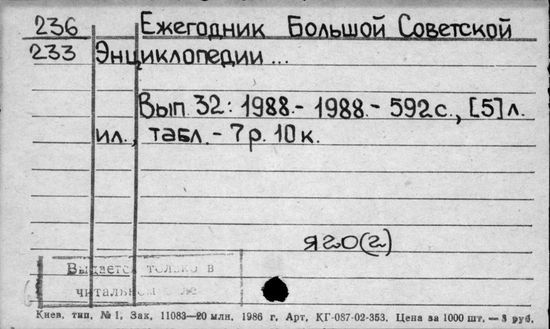 236 Ежегодник Большой Советской
233 Энциклопедии ...
Вып. 32: 1988.- 1988.- 592 с., [5] л.
ил., табл. - 7 р. 10 к.
я20(2)
Выдается только в
читальном зале
Киев. тип. № 1, Зак. 11083—20 млн. 1986 г. Арт. КГ-087-02-353. Цена за 1000 шт. — 3 руб.